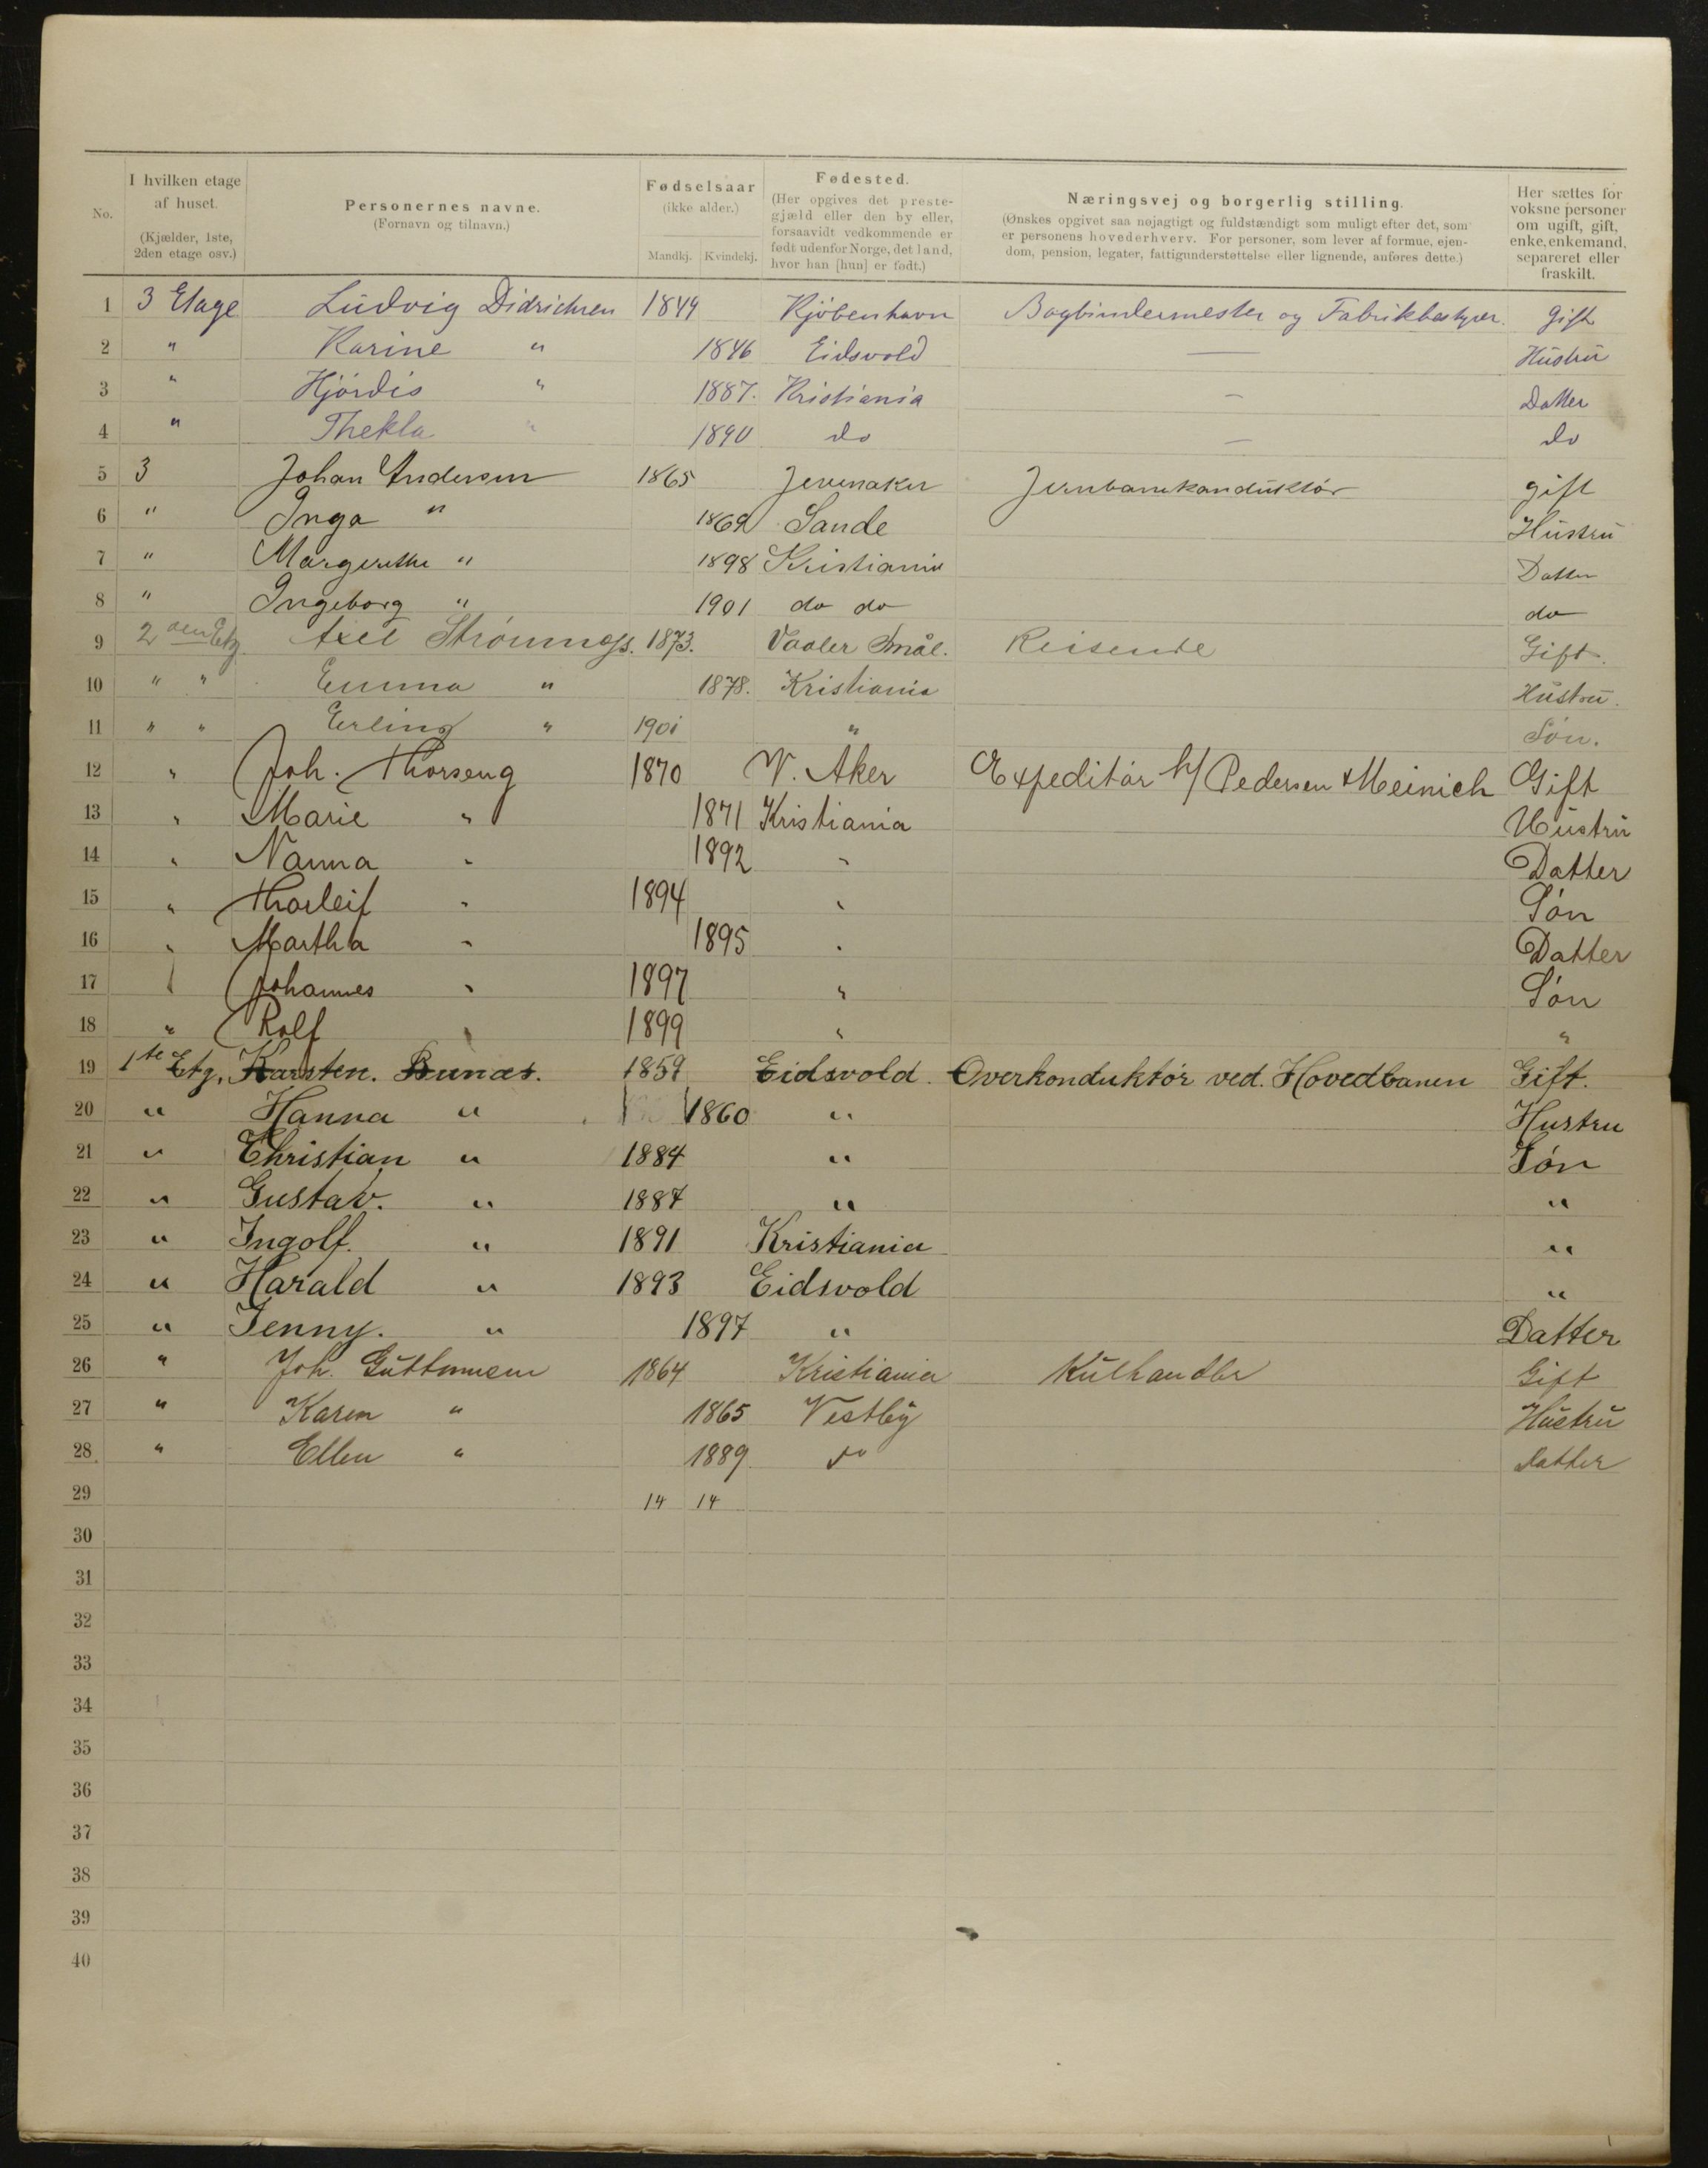 No. I hvilken etage af huset. (Kjælder, 1ste, 2den etage osv.) Personernes navne. (Fornavn og tilnavn.) Fødselsaar (ikke alder.) Mandkj. Kvindekj. Fødested. (Her opgives det prestegjæld eller den by eller, forsaavidt vedkommende er født udenfor Norge, det land, hvor han [hun] er født.) Næringsvej og borgerlig stilling. (Ønskes opgivet saa nøjagtigt og fuldstændigt som muligt efter det, som er personens hovederhverv. For personer, som lever af formue, ejendom, pension, legater, fattigunderstøttelse eller lignende, anføres dette.) Her sættes for voksne personer om ugift, gift, enke, enkemand, separeret eller fraskilt.
1 3 Etage Ludvig Didrichsen 1849 Kjöbenhavn Bogbindermester og Fabrikbestyrer. Gift
2 " Karine " 1846 Eidsvold — Hustru
3 " Hjördis " 1887. Kristiania — Datter
4 " Thekla " 1890 do — do
5 3 Johan Andersen 1865 Jevnaker Jernbanekonduktör gift
6 " Inga " 1869 Sande Hustru
7 " Margrethe " 1898 Kristiania Datter
8 " Ingeborg " 1901 do do do
9 2den Etg Axel Strömnæss. 1873. Vaaler Smål. Reisende Gift.
10 " " Emma " 1878. Kristiania Hustru.
11 " " Erling " 1901 " Sön.
12 " Joh. Thorseng 1870 V. Aker Expeditör h/ Pedersen & Meinich Gift
13 " Marie " 1871 Kristiania Hustru
14 " Nanna " 1892 " Datter
15 " Thorleif " 1894 " Sön
16 " Martha " 1895 " Datter
17 " Johannes " 1897 " Sön
18 " Rolf " 1899 " "
19 1ste Etg. Karsten. Bunæs. 1859 Eidsvold. Overkonduktör ved. Hovedbanen Gift.
20 " Hanna " 1860 " Hustru
21 " Christian " 1884 " Sön
22 " Gustav. " 1887 " "
23 " Ingolf. " 1891 Kristiania "
24 " Harald " 1893 Eidsvold "
25 " Jenny. " 1897 " Datter
26 " Joh. Guttormsen 1864 Kristiania Kulhandler Gift
27 " Karen " 1865 Vestby Hustru
28 " Ellen " 1889 do Datter
29 14 14
30
31
32
33
34
35
36
37
38
39
40